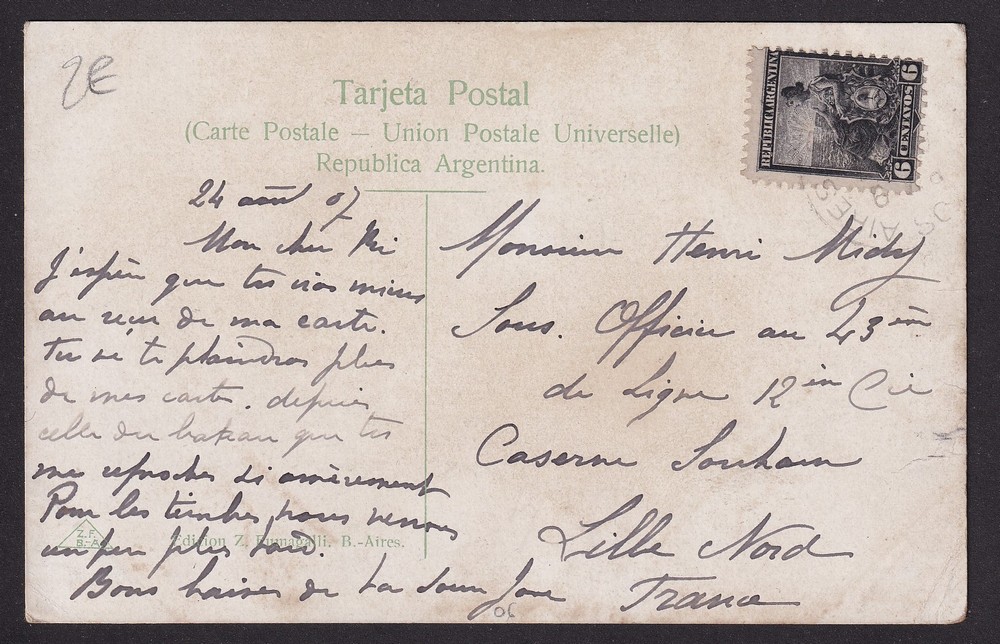 2E
Tarjeta Postal
(Carte Postale — Union Postale Universelle)
Republica Argentina.
REPUBLICA ARGENTINA
6 CENTAVOS 6
S AIRES
24 août 07
Mon cher
J'espère que tu vas mieux
au reçu de ma carte.
tu ne te plaindras plus
de mes cartes. depuis
celle du bateau que tu
me reproches si amèrement
Pour les timbres, nous verrons
un peu plus tard.
Bons baisers de ta soeur
Monsieur Henri Midy
Sous. Officier au 43 ème
de Ligne 12 ème Cie
Caserne Souham
Lille Nord
France
Z. F.
B.-A.
Edicion Z. Fumagalli. B.-Aires.
06